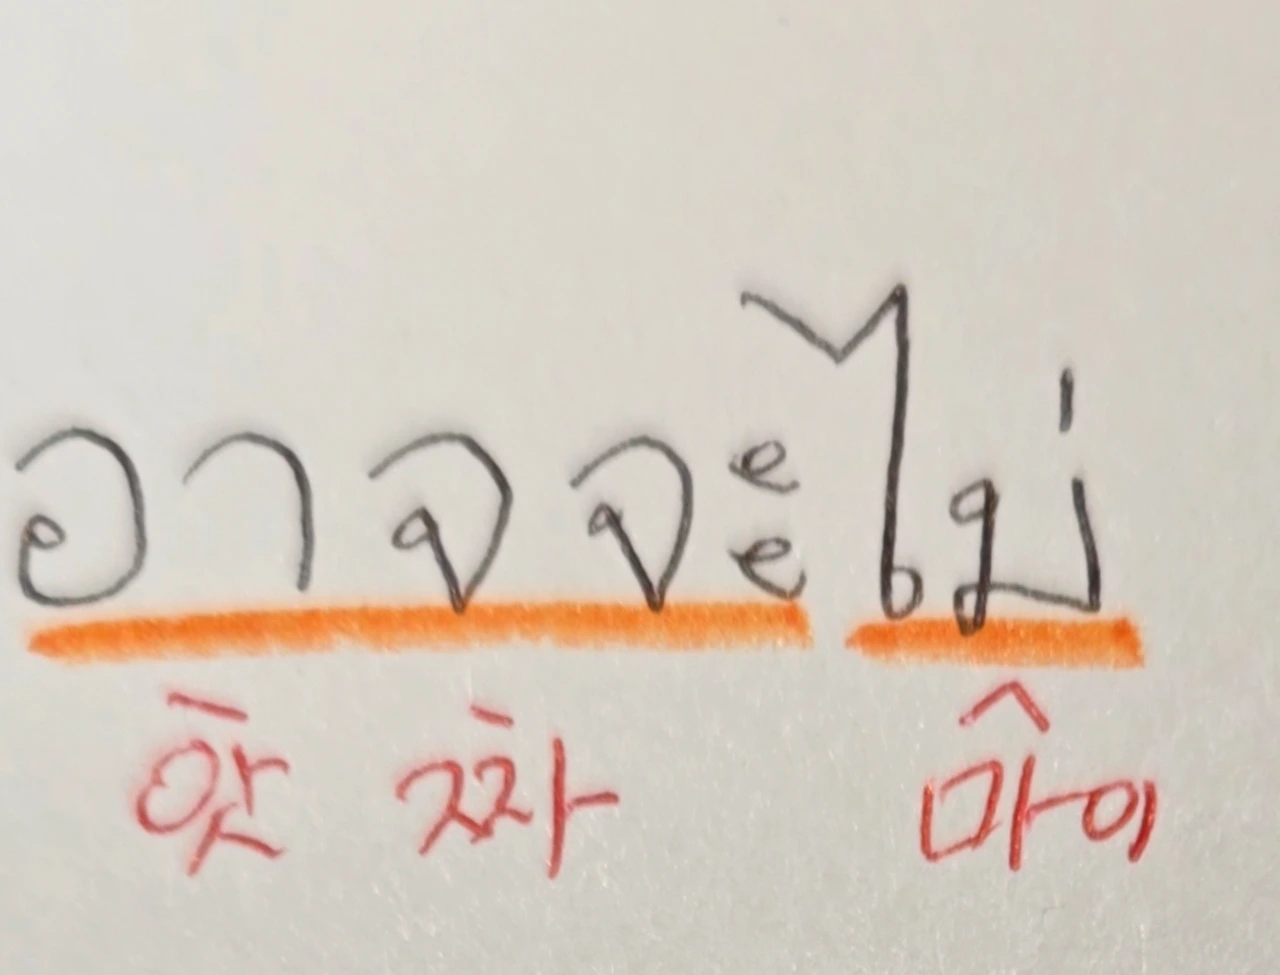 อาจจะไม่
앗 짜 마이